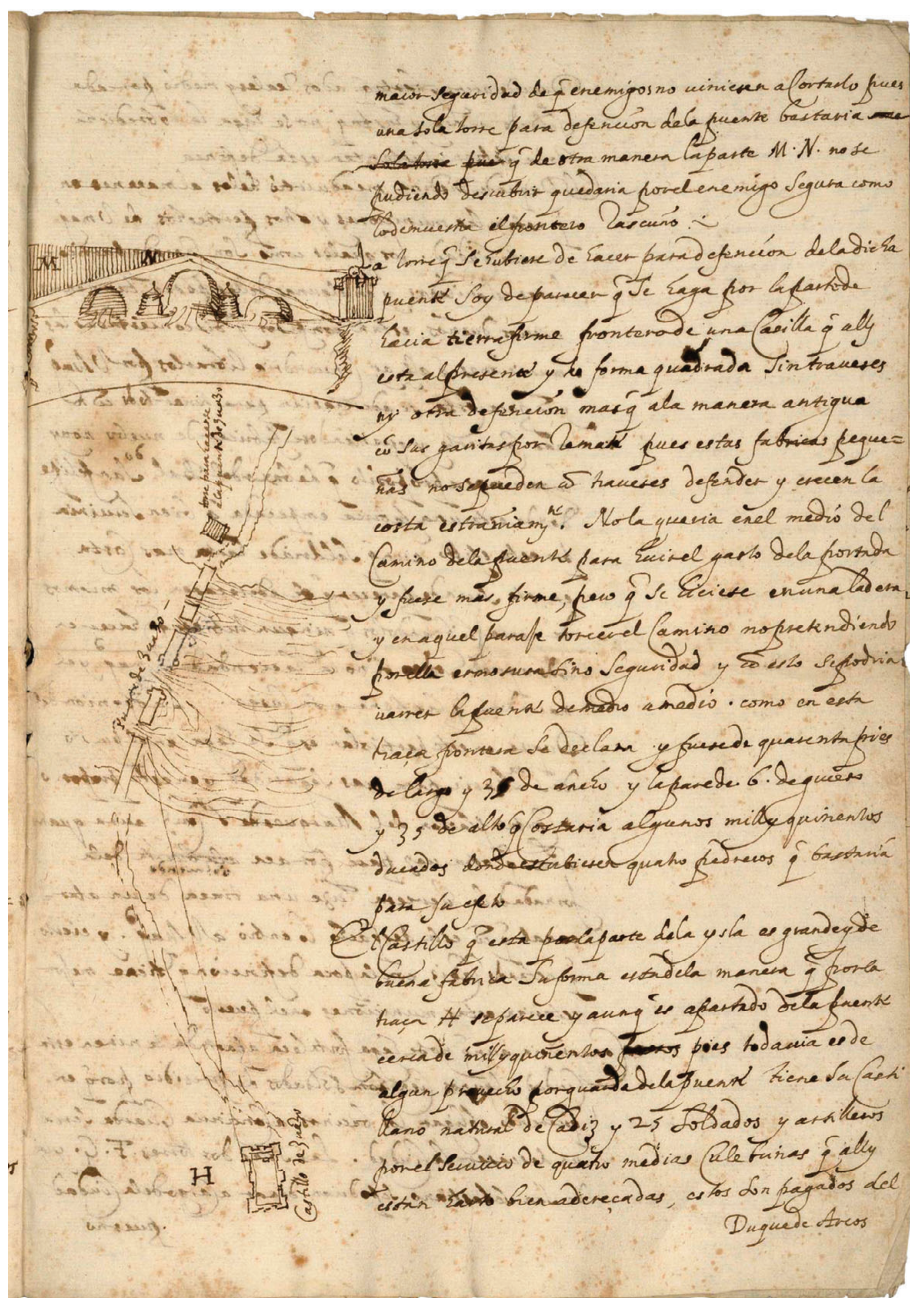 maior seguridad de q̃ enemigos no viniesen a Cortarlo pues
una sola torre para defencion dela puente bastaria
sola torre pue q̃ de otra manera la parte M. N. no se
pudiendo descubrir quedaria por el enemigo segura como
lo demuestra el frontero Rascuño
La torre q̃ se hubiese de hacer para defencion dela dicha
puente soy de parecer q̃ se haga por la parte de
hacia tierra firme frontero de una Casilla q̃ ally
esta al presente y de forma quadrada sin traveses
ny otra defencion mas q̃ ala manera antigua
cõ sus garitas por remate pues estas fabricas peque=
ñas no se pueden cõ traveses defender y crecen la
costa estrañam.te. No la queria en el medio del
Camino dela puente para huir el gasto dela portada
y fuese mas firme, pero q̃ se hiciese en una ladera
y en aquel paraje torcer el Camino no pretendiendo
por ella ermosura sino seguridad y cõ esto se podria
varrer la puente de medio a medio. como en esta
traça frontera se declara y fuese de quarenta pies
de largo y 35 de ancho y la pared de 6. de grueso
y 35 de alto q̃ Costaria algunos mill y quinientos
ducados donde estubiesen quatro pedreros q̃ bastaria
para su efeto
El Castillo q̃ esta por la parte dela ysla es grande y de
buena fabrica su forma esta dela manera q̃ por la
traça H se parece y aunq̃ es apartado dela puente
cerca de mill y quinientos pies todavia es de
algun provecho por guarda dela puente tiene su Casti
llano natural de Cadiz y 25 soldados y artilleros
por el servicio de quatro medias Culebrinas q̃ ally
estan harto bien adereçadas, estos son pagados del
Duque de Arcos
M N
torre para hacerse
a la puente de zuaço
Puente de zuaço
H
Castillo de zuaço